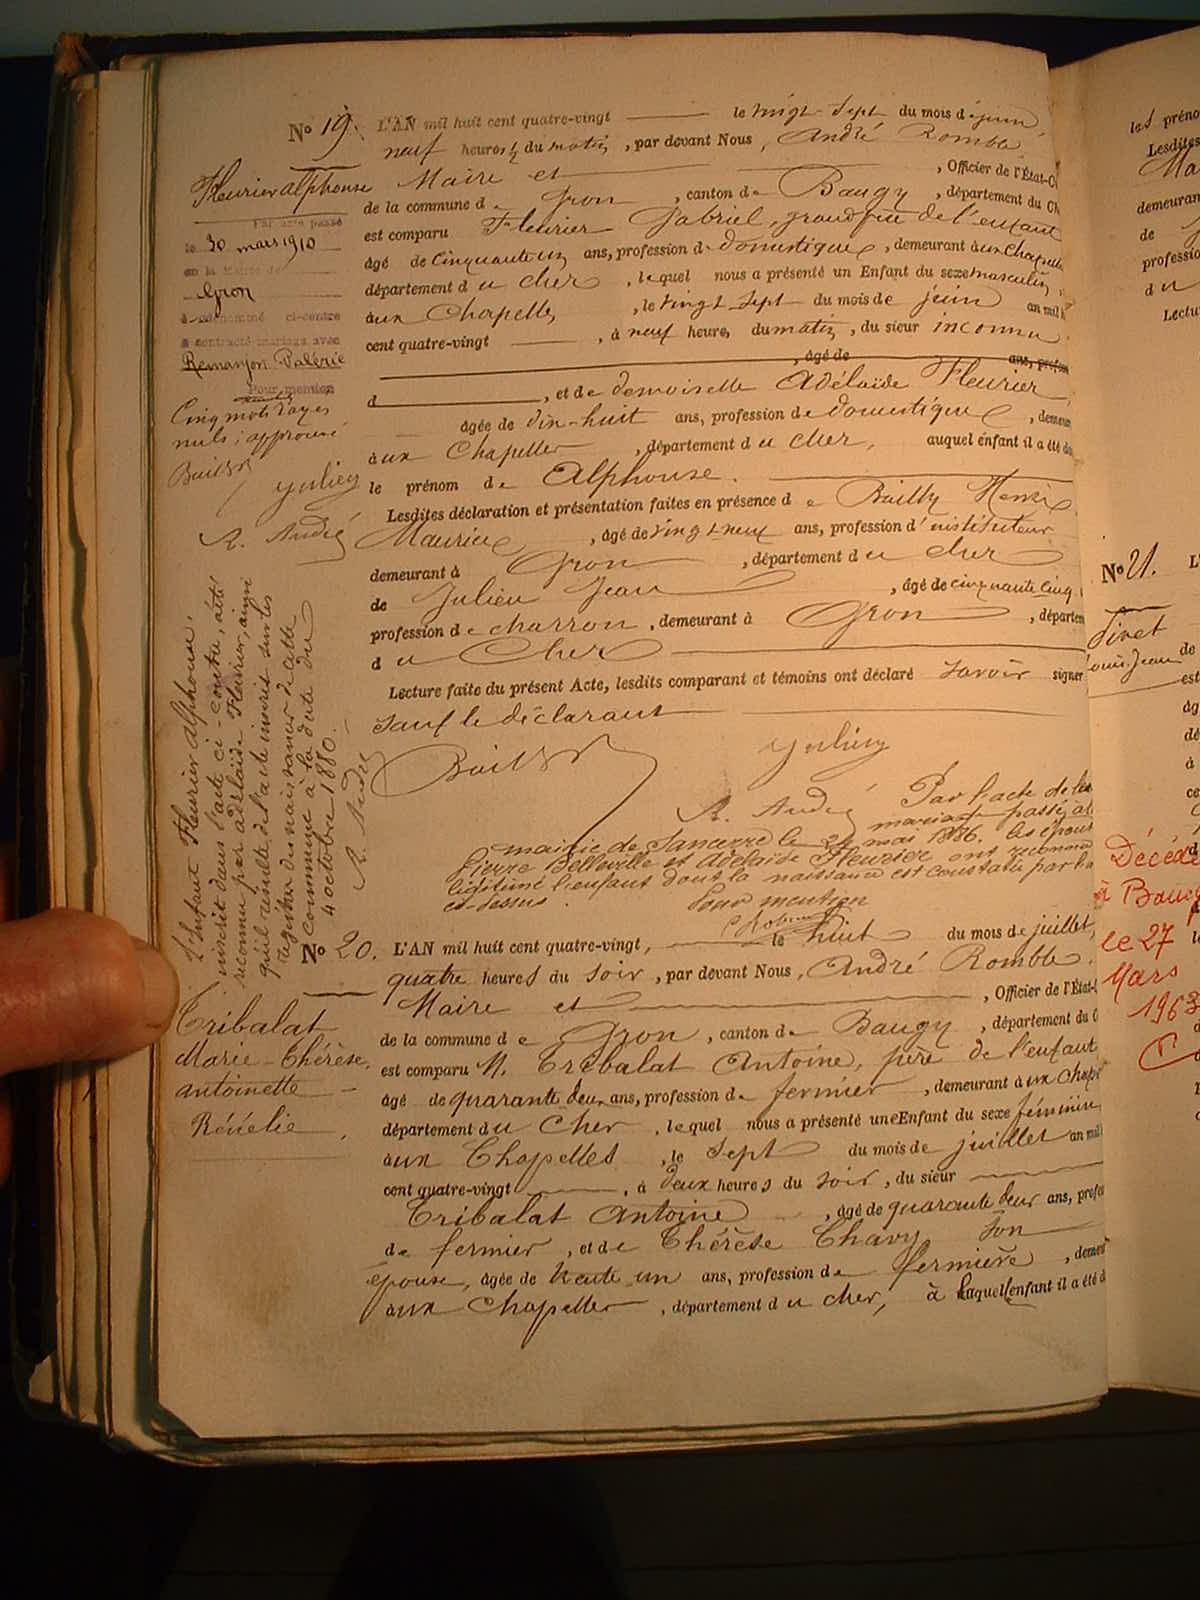 No 19.
Fleurier Alphonse
Par acte passé
le 30 mars 1910
en la Mairie de
Gron
le dénommé ci-contre
a contracté mariage avec
Remanjon Valérie
Pour mention
Cinq mots rayés
nuls ; approuvé
Bailly
Julien
R. André
L'Enfant Fleurier Alphonse,
inscrit dans l'acte ci-contre, a été
reconnu par Adélaïde Fleurier, ainsi
qu'il résulte de l'acte inscrit sur les
registres des naissances de cette
commune à la date du
4 octobre 1880.
R. André
L'AN mil huit cent quatre-vingt le vingt sept du mois de juin,
neuf heures ½ du matin, par devant Nous, André Romble
Maire et , Officier de l'État-C
de la commune de Gron , canton de Baugy , département du Ch
est comparu Fleurier Gabriel, grand père de l'enfant
âgé de cinquante un ans, profession de domestique , demeurant aux Chapelle
département du cher , lequel nous a présenté un Enfant du sexe masculin,
aux Chapelles , le vingt-sept du mois de juin an mil h
cent quatre-vingt , à neuf heure, du matin , du sieur inconnu
, âgé de ans, profess
d , et de demoiselle Adélaïde Fleurier ,
âgée de dix-huit ans, profession de domestique , demeur
aux Chapelles , département du cher, auquel enfant il a été do
le prénom de Alphonse.
Lesdites déclaration et présentation faites en présence de Bailly Henri
Maurice , âgé de vingt-neuf ans, profession d'instituteur
demeurant à Gron , département du cher
de Julien Jean , âgé de cinquante cinq
profession de charron , demeurant à Gron , départem
du Cher
Lecture faite du présent Acte, lesdits comparant et témoins ont déclaré savoir signer
sauf le déclarant
Bailly
Julien
R. André
Par l'acte de leur
mariage passé à la
mairie de Sancerre le 24 mai 1886. les époux
Pierre Belleville et Adélaïde Fleurier ont reconnu
légitimé l'enfant dont la naissance est constatée par l'a
ci-dessus.
Pour mention
No 20.
Tribalat
Marie-Thérèse,
Antoinette
L'AN mil huit cent quatre-vingt, le huit du mois de juillet,
quatre heures du soir , par devant Nous, André Romble
Maire et , Officier de l'État-
de la commune de Gron , canton de Baugy , département du C
est comparu M. Tribalat Antoine, père de l'enfant
âgé de quarante deux ans, profession de fermier , demeurant aux Chape
département du Cher , lequel nous a présenté une Enfant du sexe féminin
aux Chapelles , le sept du mois de juillet an mil
cent quatre-vingt , à deux heures du soir , du sieur
Tribalat Antoine , âgé de quarante deux ans, profes
de fermier , et de Thérèse Chavy son
épouse, âgée de trente un ans, profession de fermière , demeur
aux Chapelles , département du cher, à laquelle enfant il a été d
les préno
Lesdites
Ma
demeuran
de
professio
du
Lectu
No 21.
Louis Jean
Décédé
à Baugy
le 27
Mars
1963